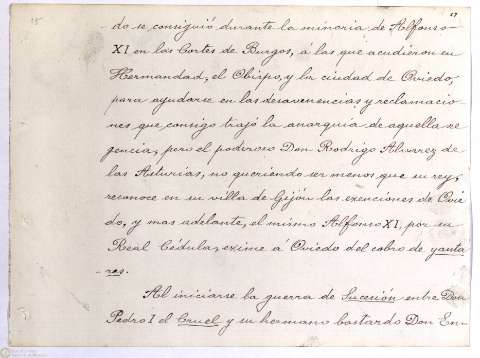 do se consiguió durante la minoria de Alfonso
XI en las Cortes de Burgos, á las que acudieron en
Hermandad, el Obispo, y la ciudad de Oviedo,
para ayudarse en las desavenencias y reclamacio-
nes que consigo trajó la anarquia de aquella re
gencia, pero el poderoso Don Rodrigo Alvarez de
las Asturias, no queriendo ser menos que su rey,
reconoce en su villa de Gijón las exenciones de Ovie
do, y mas adelante, el mismo Alfonso XI, por su
Real Cédula, exime á Oviedo del cobro de yanta
-res.
Al iniciarse la guerra de Sucesión entre Don
Pedro I el Cruel y su hermano bastardo Don En-